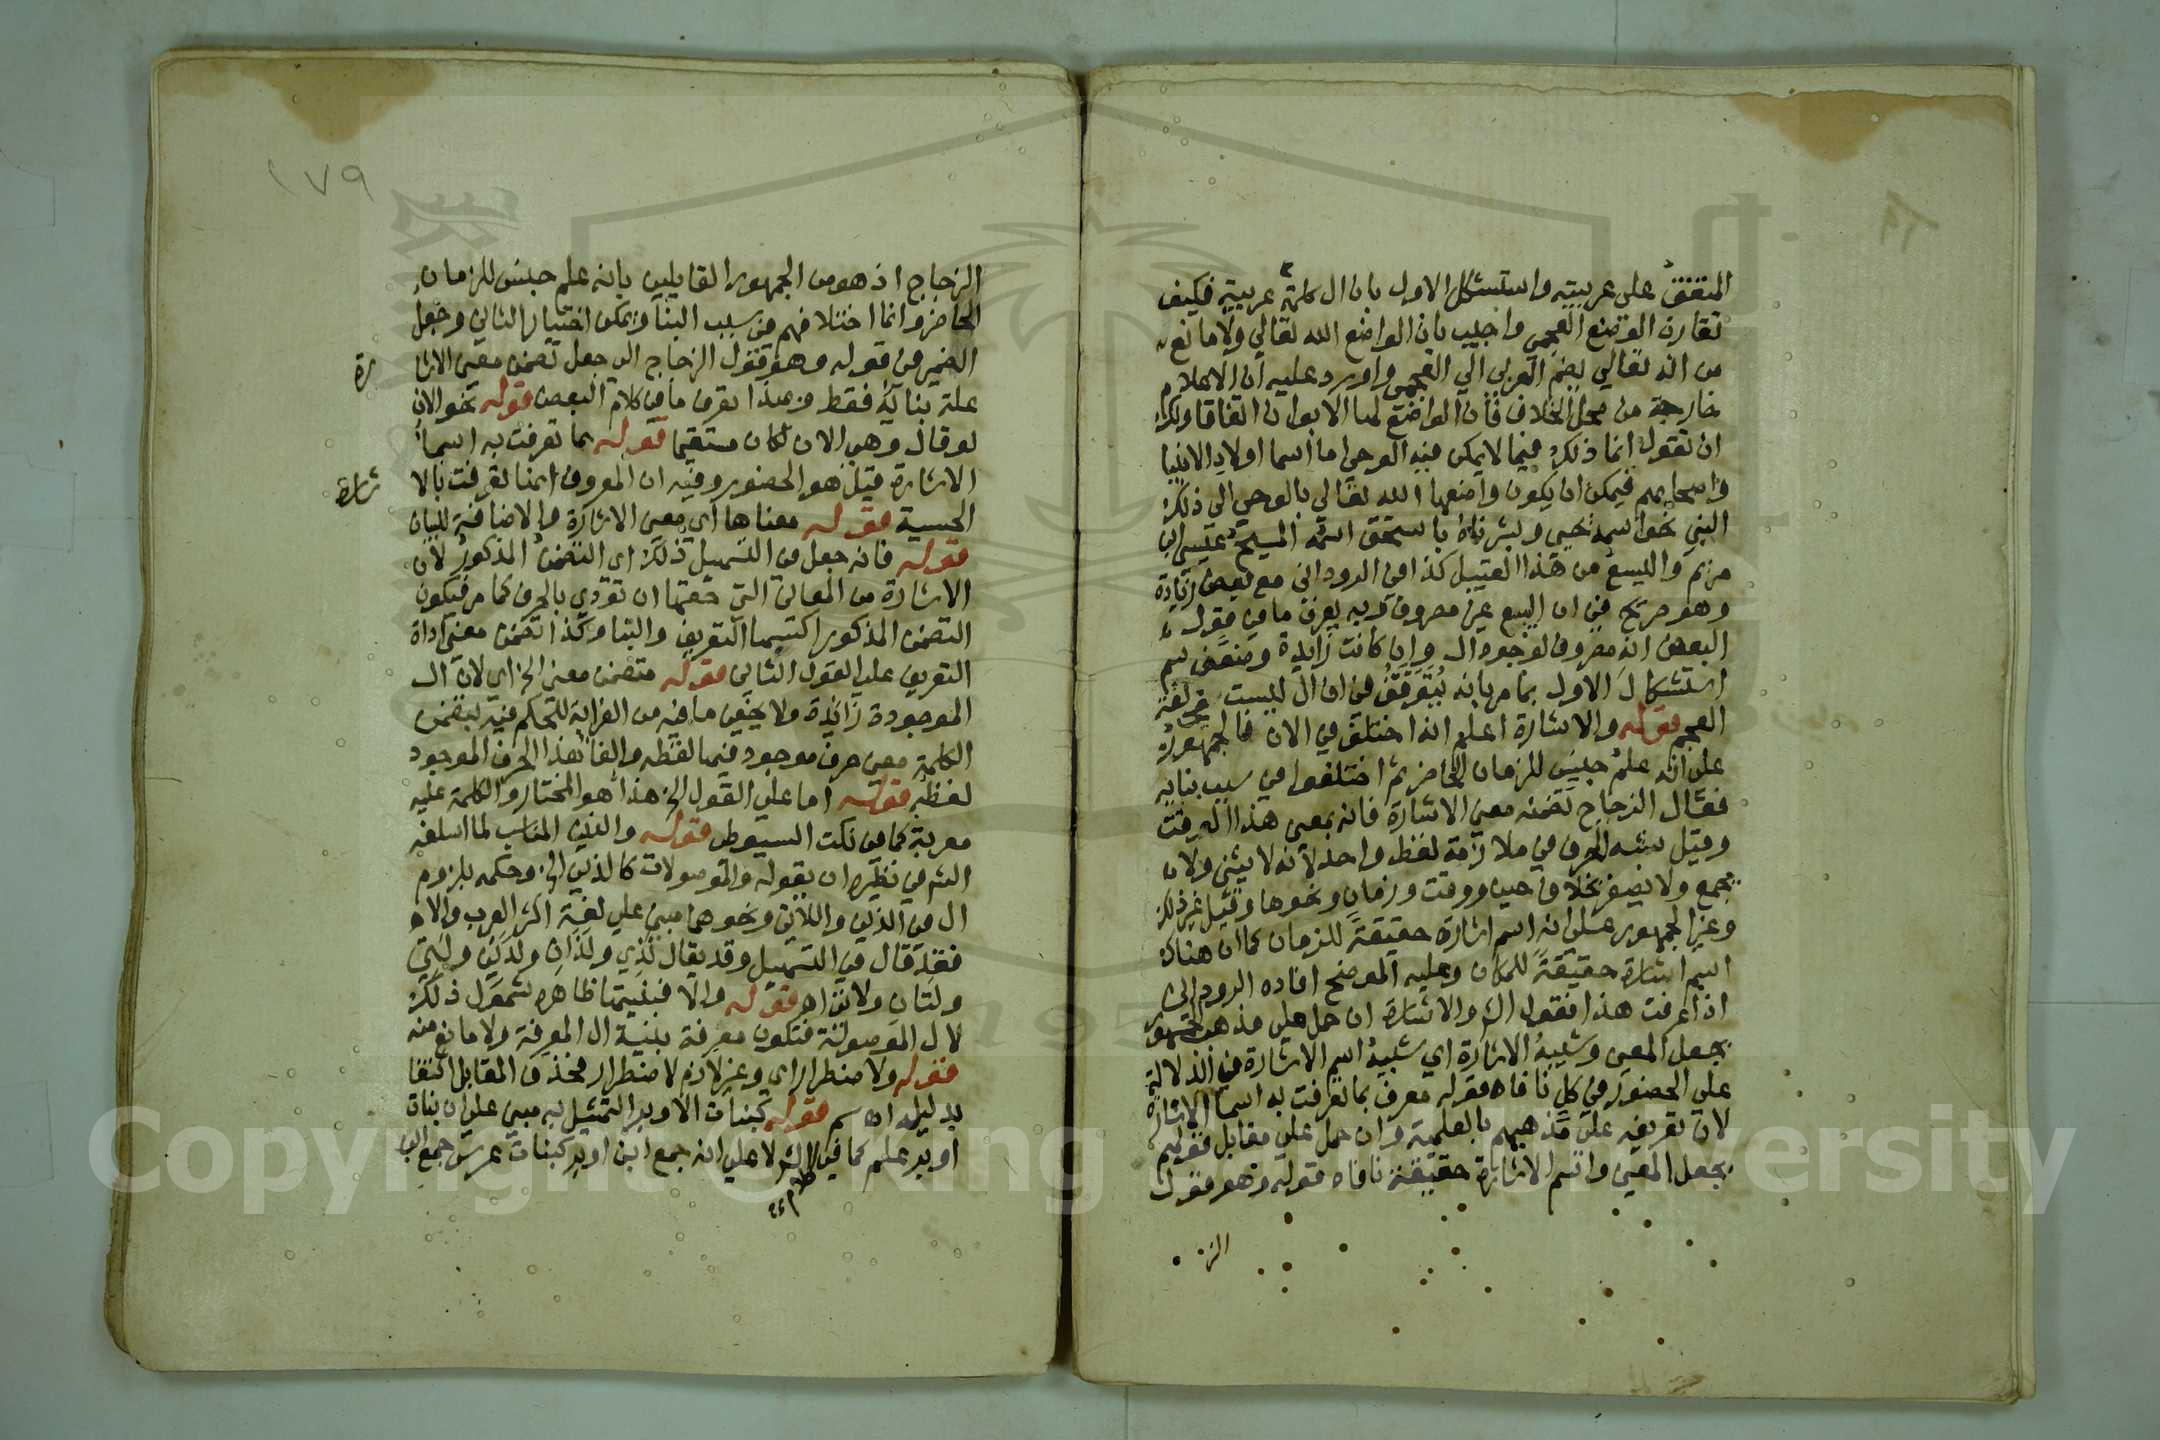 المتفق على عربيته واستشكل الاول بان ال كلمة عربية فكيف
تقارن الوضع العجمي واجيب بان الواضع الله تعالى ولا مانع
من انه تعالى يضم العربي الى العجمي واورد عليه ان الاعلام
خارجة من محل الخلاف فان الواضع لها الابوان اتفاقا ولك
ان تقول انما ذلك فيما لا يمكن فيه الوحي اما اسما اولاد الانبيا
واصحابهم فيمكن ان يكون واضعها الله تعالى بالوحي الى ذلك
النبي نحو اسمه يحيى وبشرناه باسحق اسمه المسيح عيسى ابن
مريم واليسع من هذا القبيل كذا في الروداني مع بعض زيادة
وهو صريح في ان اليسع غير مصروف وبه يعرف ما في قول
البعض انه مصروف لوجود ال وان كانت زايدة وضعف سم
استشكال الاول بما مر بانه يتوقف على ان ال ليست في لغة
العجم قوله والاشارة اعلم انه اختلف في الان فالجمهور
على انه علم جنس للزمان الحاضر ثم اختلفوا في سبب بنايه
فقال الزجاج تضمنه معنى الاشارة فانه بمعنى هذا الوقت
وقيل شبه الحرف في ملازمة لفظ واحد لانه لا يثنى ولا
يجمع ولا يصغر بخلاف حين ووقت وزمان ونحوها وقيل غير ذلك
وغير الجمهور على انه اسم اشارة حقيقة للزمان كما ان هناك
اسم اشارة حقيقة للمكان وعليه الموضح افاده الروداني
اذا عرفت هذا فقول الش والاشارة ان حمل على مذهب الجمهور
بجعل المعنى وشبيه الاشارة اي شبيه اسم الاشارة في الدلالة
على الحضور في كل نافاه قوله معرف بما تعرفت به اسما الاشارة
لان تعريفه على مذهبهم بالعلمية وان حمل على مقابل قولهم
بجعل المعنى واسم الاشارة حقيقة نافاه قوله وهو قول
الز
١٧٩
الزجاج اذ هو من الجمهور القايلين بانه علم جنس للزمان
الحاضر وانما اختلافهم في سبب البنا ويمكن اختيار الثاني وجعل
الضمير في قوله وهو قول الزجاج الى جعل تضمن معنى الاشا
رة
علة بنائه فقط وبهذا يعرف ما في كلام البعض قوله نحو الان
لو قال وهي الان لكان مستقيما قوله بما تعرفت به اسما
الاشارة قيل هو الحضور وفيه ان المعروف انها تعرفت بالا
شارة
الحسية قوله معناها اي معنى الاشارة والاضافة للبيان
قوله فانه جعل في التسهيل ذلك اي التضمن المذكور لان
الاشارة من المعاني التي حقها ان تؤدي بالحرف كما مر فيكون
التضمن المذكور اكتسبها التعريف والبنا وكذا تضمن معنى اداة
التعريف على القول الثاني قوله متضمن معنى الخ اي لان ال
الموجودة زائدة ولا يخفى ما فيه من الغرابة للتحكم فيه بتضمن
الكلمة معنى حرف موجود فيها لفظه والغا هذا الحرف الموجود
لفظه قوله اما على القول الخ هذا هو المختار والكلمة عليه
معربة كما في نكت السيوطي قوله والذين المناسب لما اسلفه
الش في نظيره ان يقوله والموصولات كالذين الخ وحكمه بلزوم
ال في الذين واللاتي ونحوهما مبني على لغة اكثر العرب والا
فقد قال في التسهيل وقد يقال لذي ولذان ولذين ولتي
ولتان ولاتي اهـ قوله والا فبنيتها ظاهره شمول ذلك
لال الموصولة فتكون معرفة بنية ال المعرفة ولا مانع منه
قوله ولاضطرار اي وغير لازم لاضطرار فحذف المقابل اكتفا
بدليله اهـ سم قوله كبنات الاوبر التمثيل به مبني على ان بنات
اوبر علم كما في الش لا على انه جمع ابن اوبر كبنات عرس جمع ابن